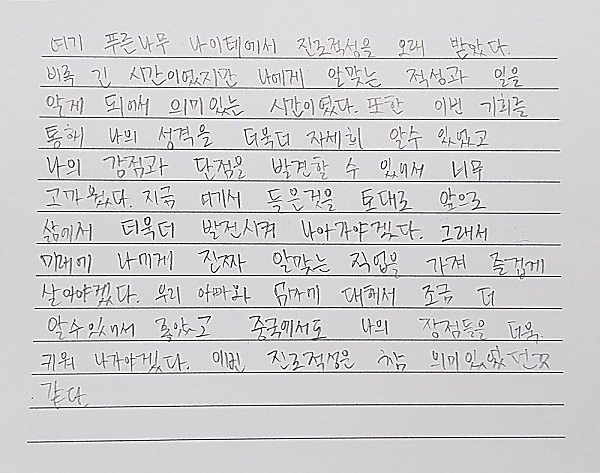 여기 푸른나무 나이테에서 진로적성을 오래 받았다.
비록 긴 시간이였지만 나에게 알맞는 적성과 일을
알게 되어서 의미있는 시간이였다. 또한 이번 기회를
통해 나의 성격을 더욱더 자세히 알수 있었고
나의 강점과 단점을 발견할 수 있어서 너무
고마웠다. 지금 여기서 들은것을 토대로 앞으로
삶에서 더욱더 발전시켜 나아가야겠다. 그래서
미래에 나에게 진짜 알맞는 직업을 가져 즐겁게
살아야겠다. 우리 아빠와 엄마에 대해서 조금 더
알수있어서 좋았고 중국에서도 나의 장점들을 더욱
키워 나가야겠다. 이번 진로적성은 참 의미있었던것
같다.